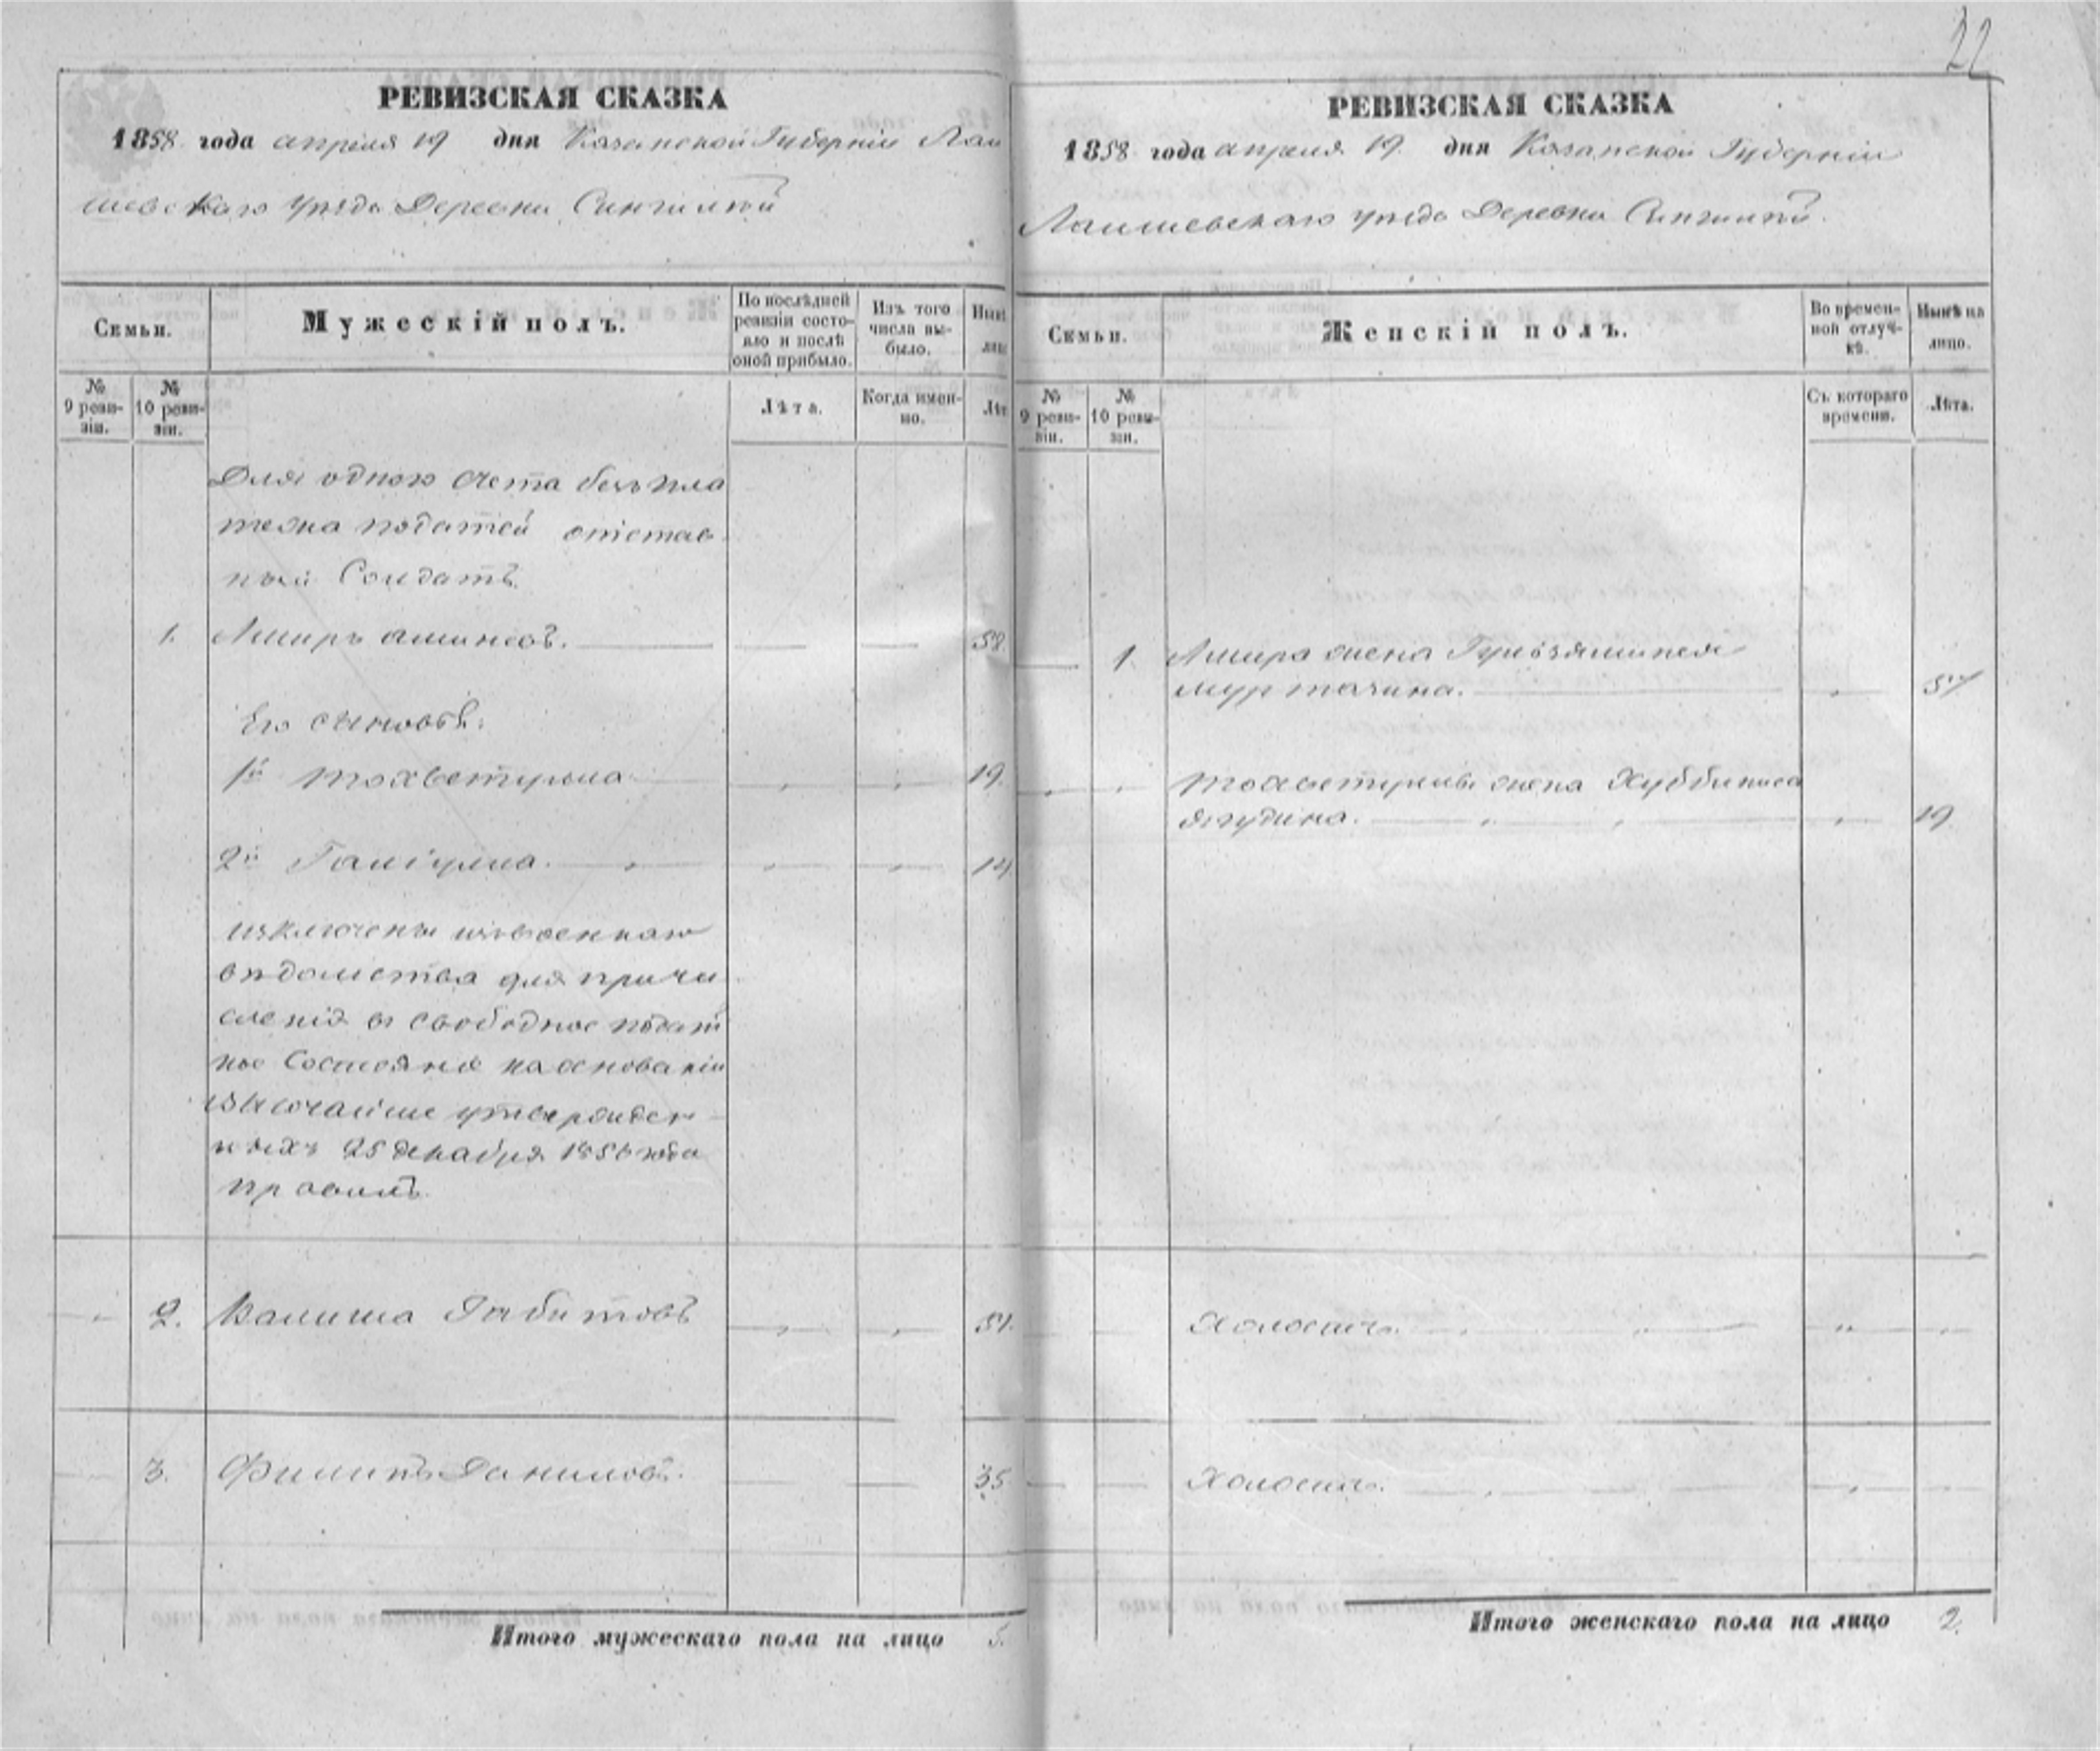 22
РЕВИЗСКАЯ СКАЗКА
1858 года апреля 19 дня Казанской Губернiи Лаи
шевскаго уѣзда Деревни
Семьи.
Мужескiй полъ.
По послѣдней
ревизiи состо-
яло и послѣ
оной прибыло.
Изъ того
числа вы-
было.
№
9 реви-
зiи.
№
10 реви-
зiи.
Лѣта.
Когда имен-
но.
Для одного счета безъ пла
тежа податей отстав
ный Солдатъ
1. Амиръ аминевъ. 58.
Его сыновья:
1й 19.
2й Галiулла. 14
изключены изъ военнаго
вѣдомства для причи
сленiя въ свободное подат
ное Состоянiе на основанiи
Высочайше утвержден
ныхъ 25 декабря 1856 года
правилъ.
2. Габитовъ 51.
3. Филипъ Даниловъ. 35
Итого мужескаго пола на лицо 5.
РЕВИЗСКАЯ СКАЗКА
1858 года апреля 19. дня Казанской Губернiи
Лаишевскаго уѣзда Деревни
Семьи.
Женскiй полъ.
Во времен-
ной отлуч-
кѣ.
Нынѣ на
лицо.
№
9 реви-
зiи.
№
10 реви-
зiи.
Съ котораго
времени.
Лѣта.
1. Амира жена
муртазина. 57
жена Хуббиниса
ягудина. 19
Холостъ.
Холостъ.
Итого женскаго пола на лицо 2.